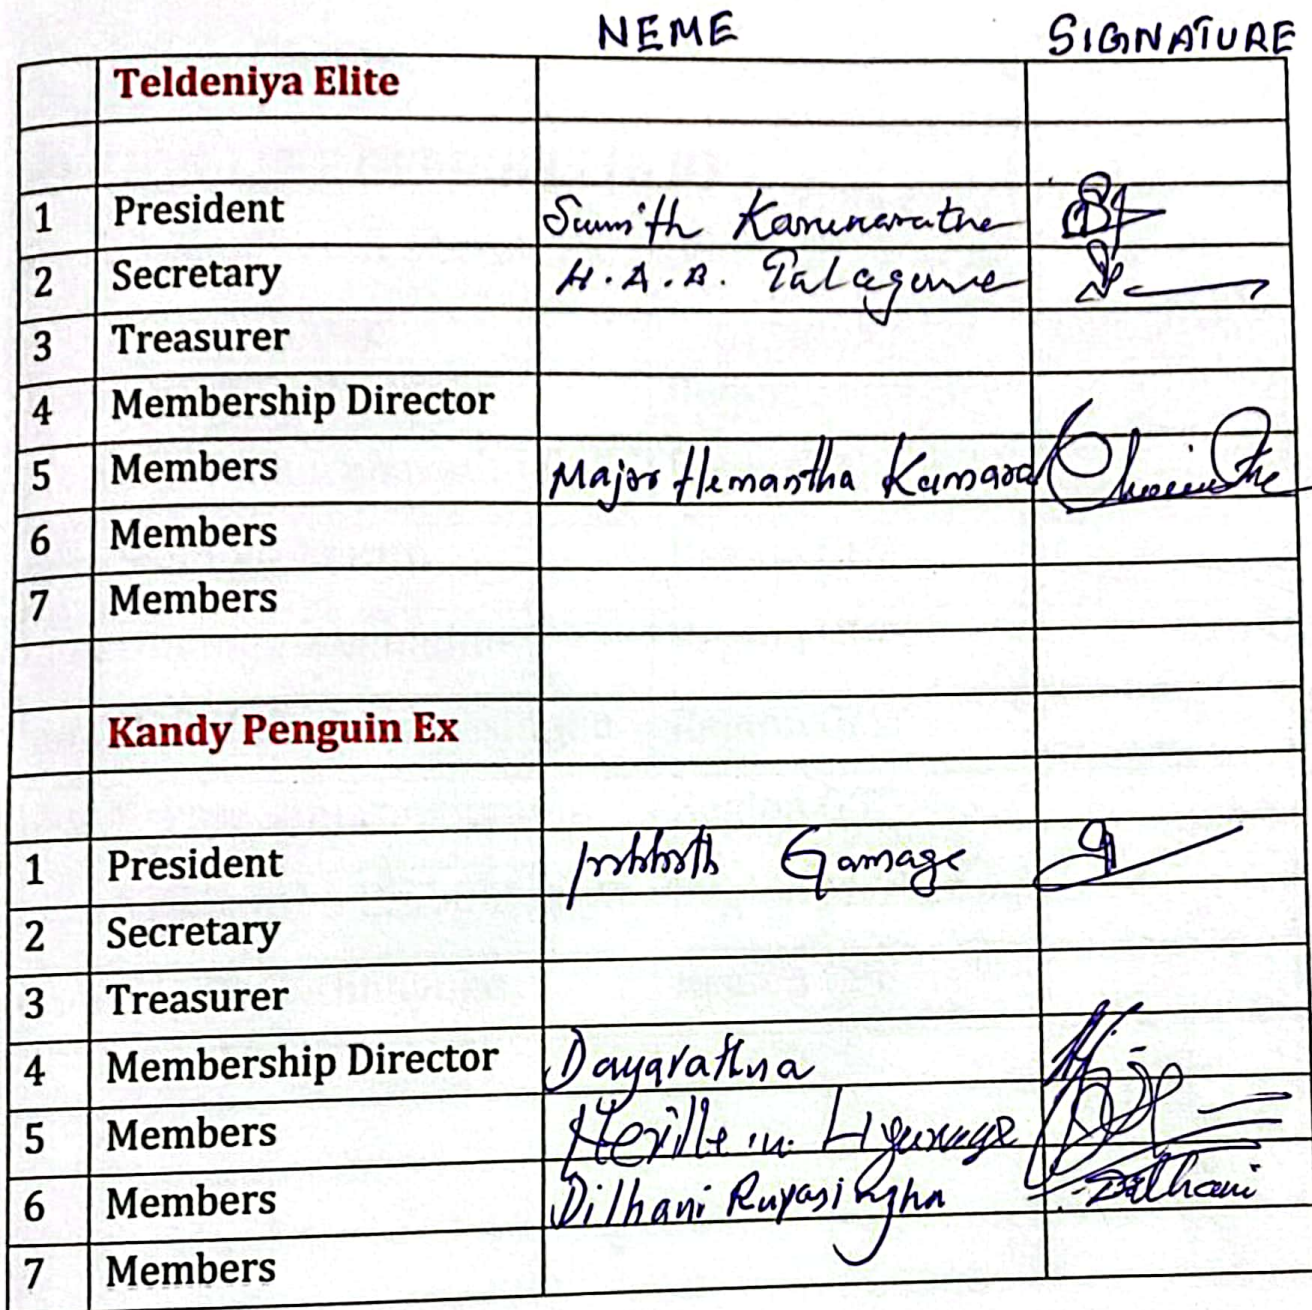 NEME SIGNATURE
Teldeniya Elite
1 President Sumith Karunarathe
2 Secretary H.A.B.
3 Treasurer
4 Membership Director
5 Members Major Hemantha Kumara
6 Members
7 Members
Kandy Penguin Ex
1 President Gamage
2 Secretary
3 Treasurer
4 Membership Director Dayarathna
5 Members
6 Members Dilhani Rupasingha Dilhani
7 Members